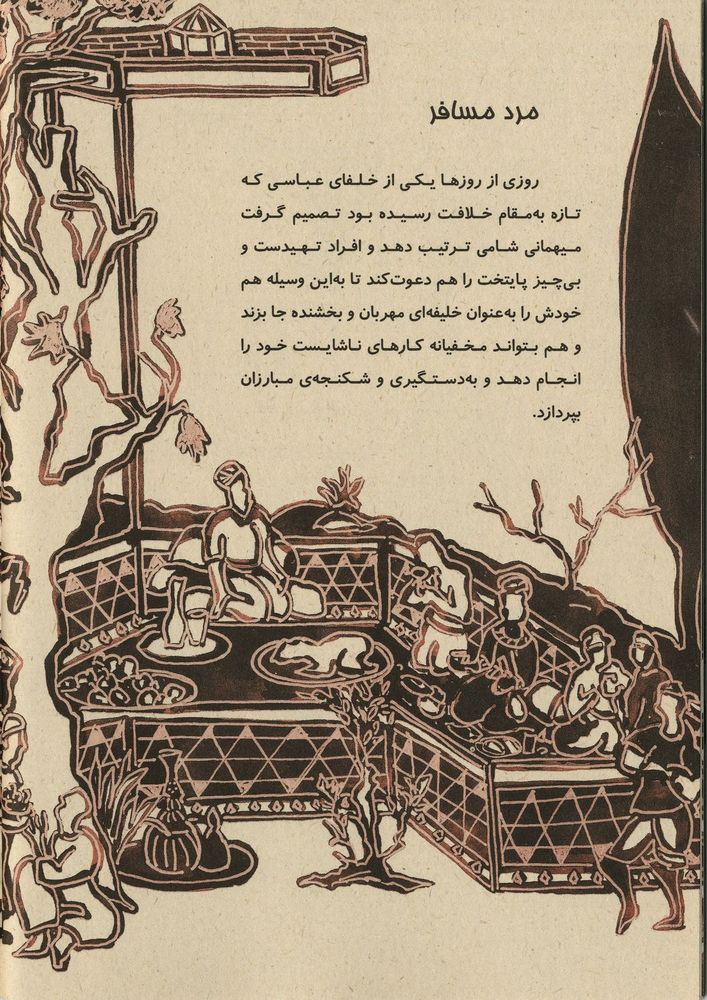 مرد مسافر
روزی از روزها یکی از خلفای عباسی که
تازه به‌مقام خلافت رسیده بود تصمیم گرفت
میهمانی شامی ترتیب دهد و افراد تهیدست و
بی‌چیز پایتخت را هم دعوت‌کند تا به‌این وسیله هم
خودش را به‌عنوان خلیفه‌ای مهربان و بخشنده جا بزند
و هم بتواند مخفیانه کارهای ناشایست خود را
انجام دهد و به‌دستگیری و شکنجه‌ی مبارزان
بپردازد.